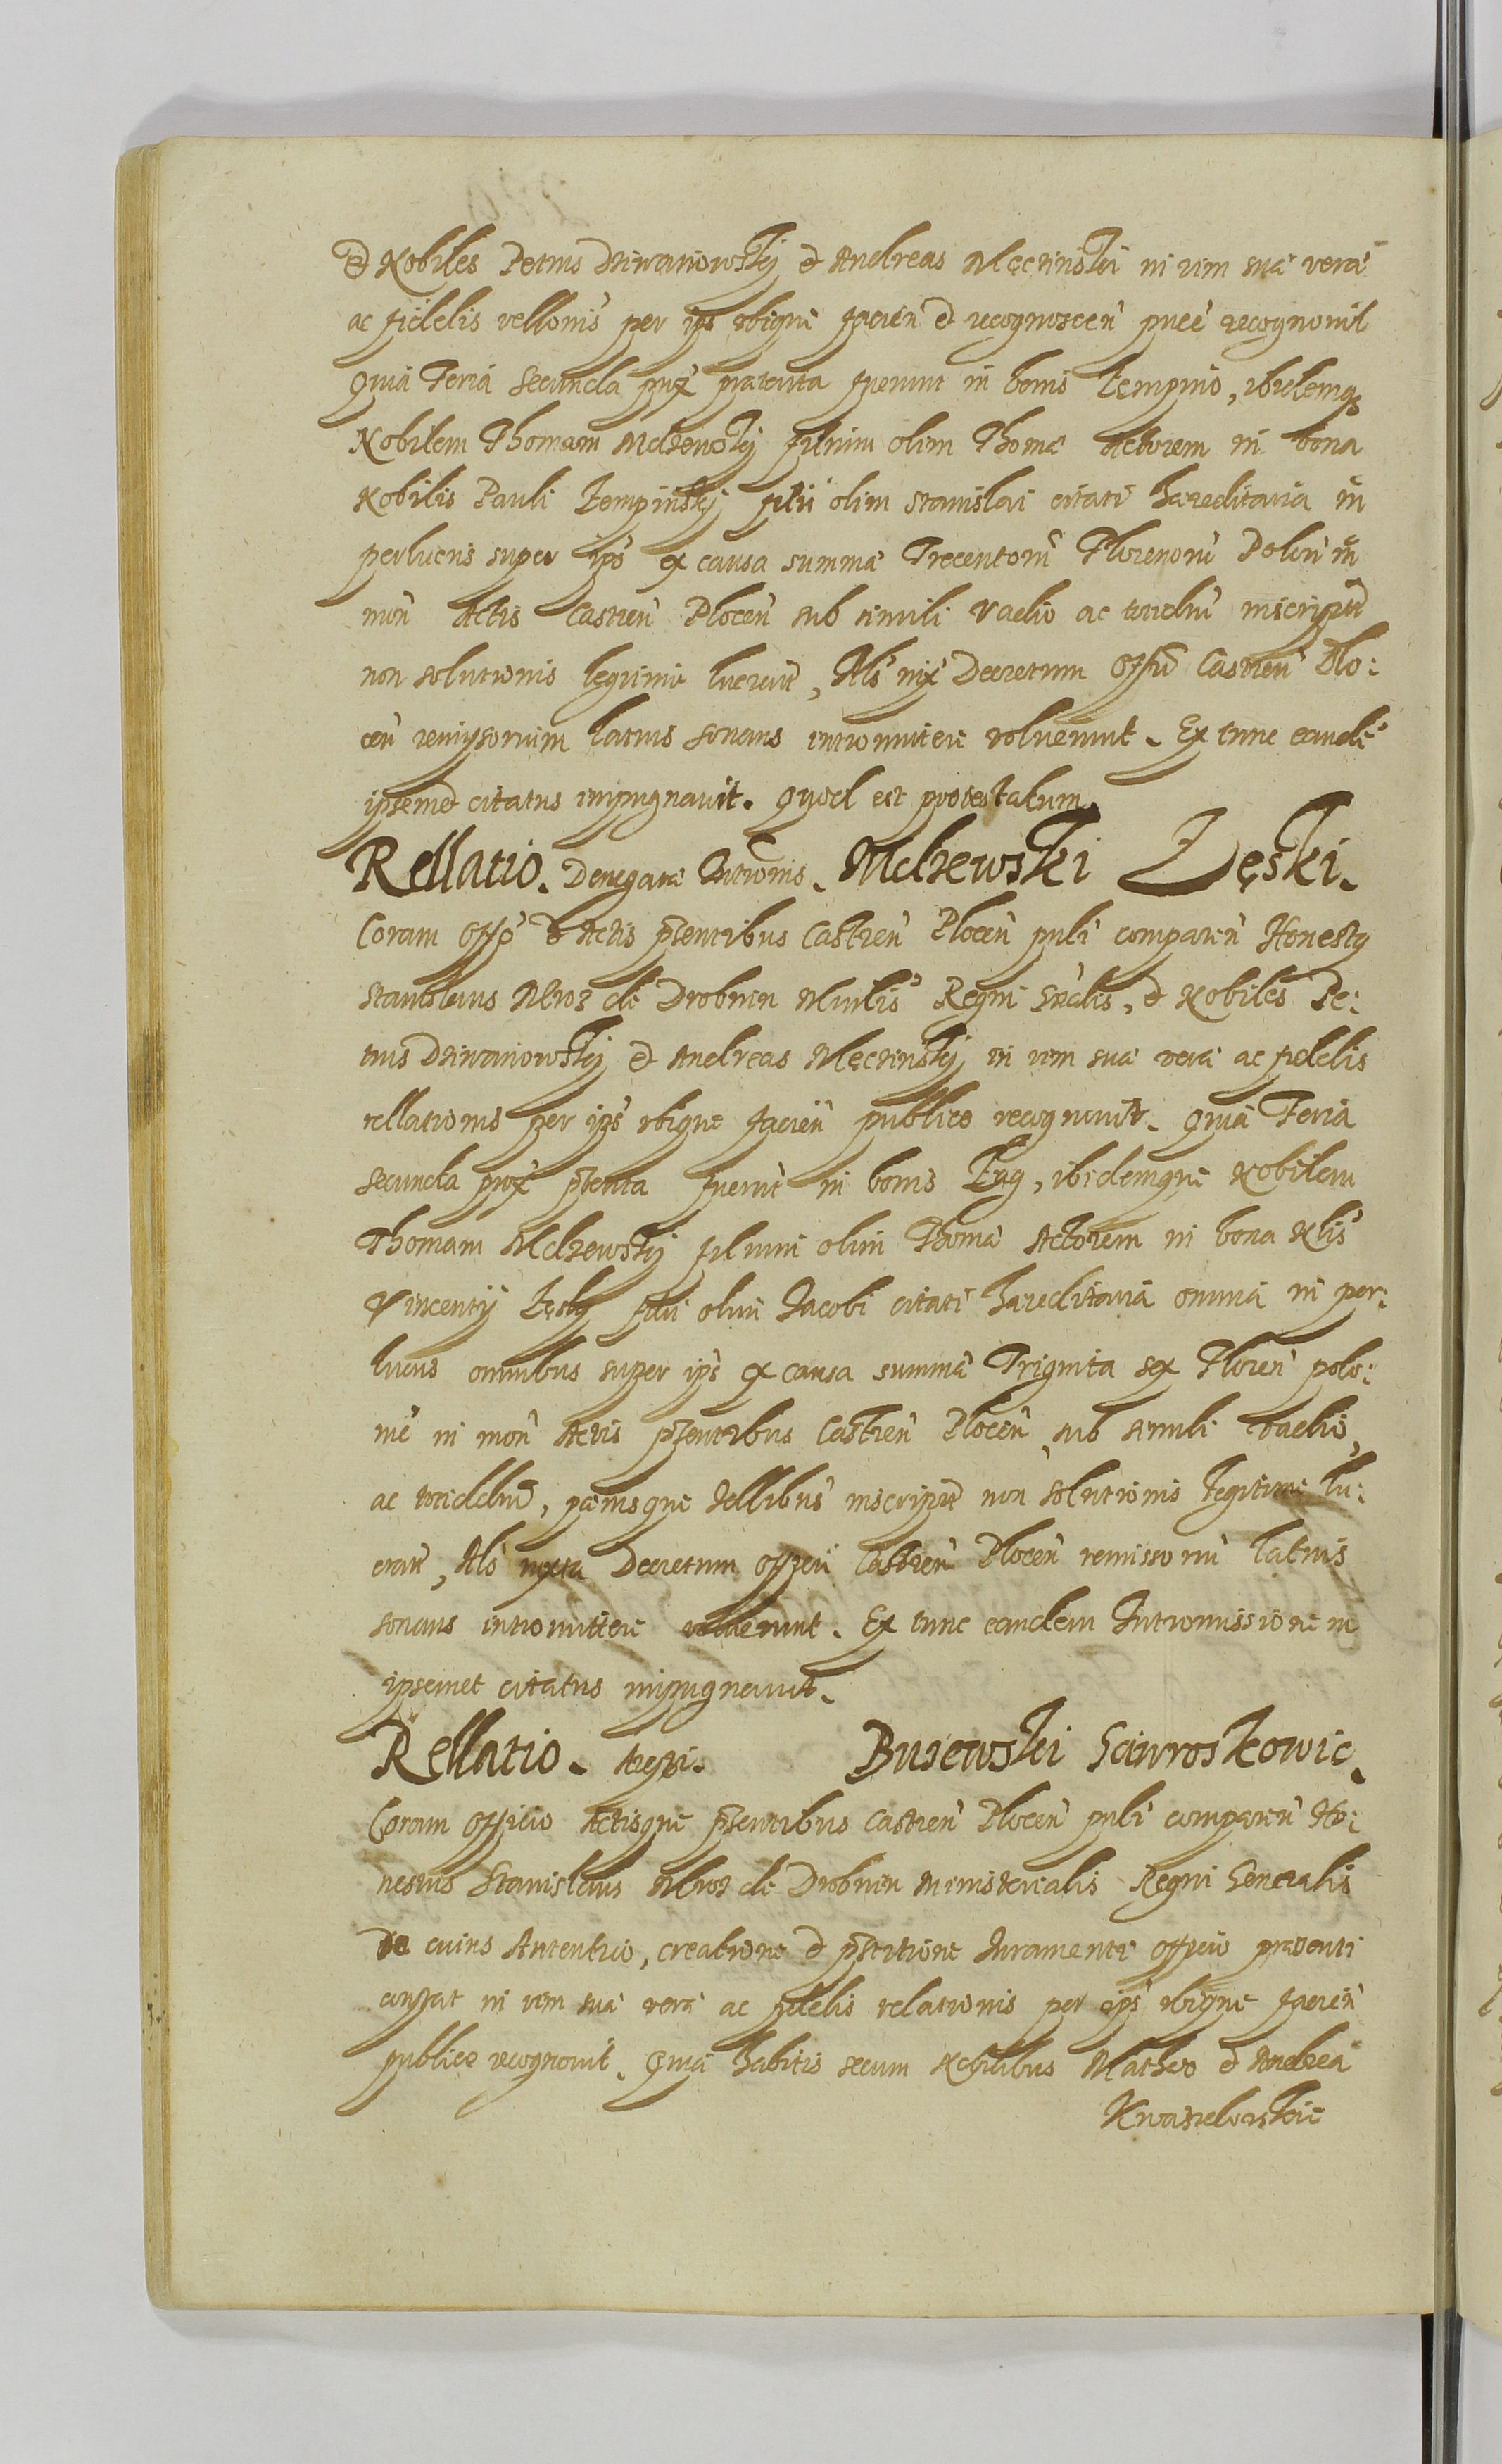 et Nobiles Petrus Dziwanowskj et Andreas Męczinskj in vim suæ veræ
ac fidelis rellonis per ips ibique facien et recognoscen pnee recognovit
Quia Feria Secunda prox præterita fuerunt in bonis Łempino, ibidemq
Nobilem Thomam Mdzewskj filium olim Thomæ Actorem in bona
Nobilis Pauli Łempinskj filii olim Stanislai citati hæreditaria in
perlucris super ips ex causa summæ Trecentorū Florenorū Polon in
mon Actis Castren Plocen sub simili Vadio ac tendni inscript
non solutionis legitime lucrat, Als iux Decretum Offii Castren Plo:
cen remissorium latius sonans intromittere voluerunt. Ex tunc eandē
ipsemet citatus impugnavit. Quod est protestatum.
Rellatio. Denegatæ Intromis. Mdzewski Łęski.
Coram Offo et Actis pntibus Castren Plocen pnli comparen Honestq
Stanislaus Mroz de Drobnin Minlis Regni Gnalis, et Nobiles Pe:
trus Dziwanowskj et Andreas Męczinskj in vim suæ veræ ac fidelis
rellationis per ips ibique facien publice recognovit. Quia Feria
secunda prox pterita fuerūt in bonis Łęg, ibidemque Nobilem
Thomam Mdzewskj filium olim Thomæ Actorem in bona Nlis
Vincentij Łęskj filii olim Jacobi citati hæreditaria omnia in per:
lucris omnibus super ips ex causa summæ Triginta sex Floren polo:
næ in mon Actis pntibus Castren Plocen sub simili vadio,
ac totidebni, pænisque tallibus inscript non solutionis legitime lu:
crat, Als iuxta Decretum offcii Castren Plocen remissoriū latius
sonans intromittere voluerunt. Ex tunc eandem Intromissionem
ipsemet citatus impugnavit.
Rellatio. Busewski Sciwroskowic.
Coram Officio Actisque pntibus Castren Plocen pnli comparen Ho:
nestus Stanislaus Mroz de Drobnin Ministerialis Regni Generalis
De cuius Autentico, creatione et pstitione Juramenti officio præsenti
constat in vim suæ veræ ac fidelis relationis per ips ibique facien
publice recognovit. Quia habitis secum Nobilibus Matheo et Andrea